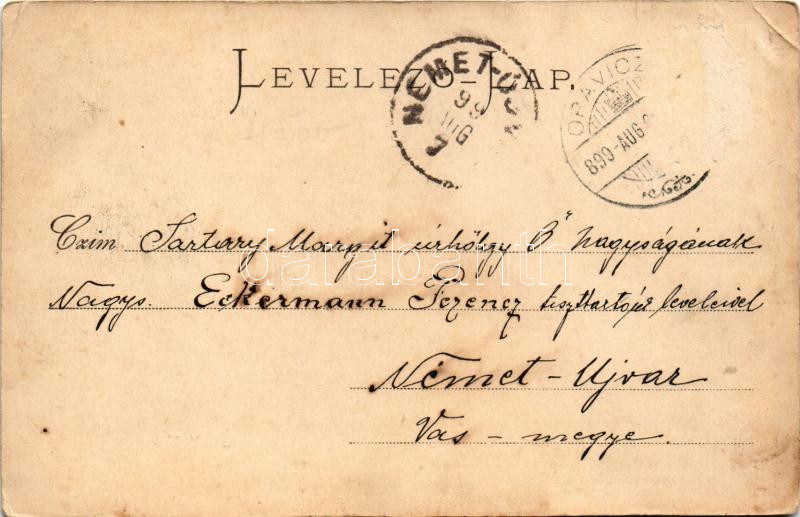 LEVELEZŐ-LAP.
NÉMET-ÚJV
99
AUG
ORAVICZ
899-AUG.
Czim Sartory Margit úrhölgy Ő nagyságának
darabanth
Nagys. Eckermann Ferencz tiszttartó úr leveleivel
Német-Ujvar
Vas-megye.